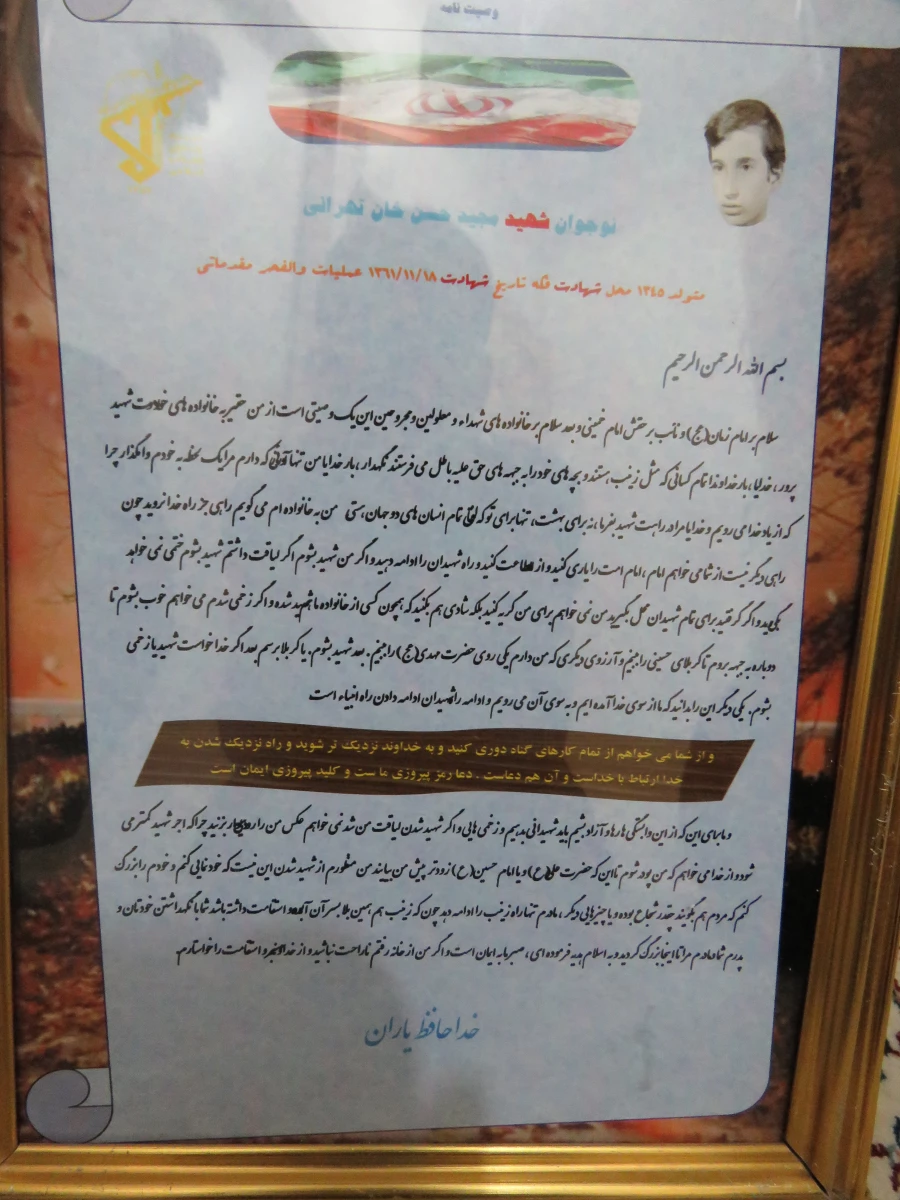 وصیت نامه
نوجوان شهید مجید حسن خان تهرانی
متولد ۱۳۴۵ محل شهادت فکه تاریخ شهادت ۱۳۶۱/۱۱/۱۸ عملیات والفجر مقدماتی
بسم الله الرحمن الرحیم
سلام بر امام زمان (عج) و نائب بر حقش امام خمینی و بعد سلام بر خانواده های شهداء و معلولین و مجروحین این یک وصیتی است از من حقیر به خانواده های شهید
پرور، خدایا، بار خداوندا تمام کسانی که مثل زینب هستند و بچه های خود را به جبهه های حق علیه باطل می فرستند نگهدار، بار خدایا من تنها که دارم مرا یک لحظه به خودم وامگذار چرا
که از یاد خدا می رویم و خدایا مرا در راهت شهید بفرما، نه برای بهشت، تنها برای تو که تمام انسان های دو جهان هستی من به خانواده ام می گویم راهی جز راه خدا نروید چون
راهی دیگر نیست از شما می خواهم امام، امام امت را یاری کنید و از اطاعت کنید و راه شهیدان را ادامه دهید و اگر من شهید بشوم اگر لیاقت داشتم شهید بشوم ختمی نمی خواهد
بگیرید و اگر گرفتید برای تمام شهیدان محل بگیرید من نمی خواهم برای من گریه کنید بلکه شادی هم بکنید که همچون کسی از خانواده ما شهید شده و اگر زخمی شدم می خواهم خوب بشوم تا
دوباره به جبهه بروم تا کربلای حسینی را ببینم و آرزوی دیگری که من دارم یکی روی حضرت مهدی (عج) را ببینم. بعد شهید بشوم. یا کربلا برسم بعد اگر خدا خواست شهید یا زخمی
بشوم. یکی دیگر این را بدانید که ما از سوی خدا آمده ایم و به سوی آن می رویم و ادامه راه شهیدان ادامه دادن راه انبیاء است
و از شما می خواهم از تمام کارهای گناه دوری کنید و به خداوند نزدیک تر شوید و راه نزدیک شدن به
خدا ارتباط با خداست و آن هم دعاست . دعا رمز پیروزی ما ست و کلید پیروزی ایمان است
و ما برای این که از این وابستگی ها رها و آزاد بشیم باید شهیدانی بدهیم و زخمی هایی و اگر شهید شدن لیاقت من شد نمی خواهم عکس من را بزنید چرا که اجر شهید کمتر می
شود و از خدا می خواهم که من پودر شوم تا این که حضرت علی (ع) و یا امام حسین (ع) زودتر پیش من بیایند من منظورم از شهید شدن این نیست که خود نمایی کنم و خودم را بزرگ
کنم که مردم هم بگویند چقدر شجاع بوده و یا چیزهایی دیگر، مادرم تنها راه زینب را ادامه دهد چون که زینب هم همین بلا بسر آن آمده و استقامت داشته باشد شما با نگهداشتن خودتان و
پدرم شما و مادرم مرا تا اینجا بزرگ کردید و به اسلام هدیه فرموده ای، صبر مایه ایمان است و اگر من از خانه رفتم ناراحت نباشید و از خدا و استقامت را خواستارم.
خدا حافظ یاران